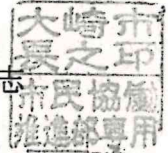 大崎市
長之印
市民協働
推進部専用